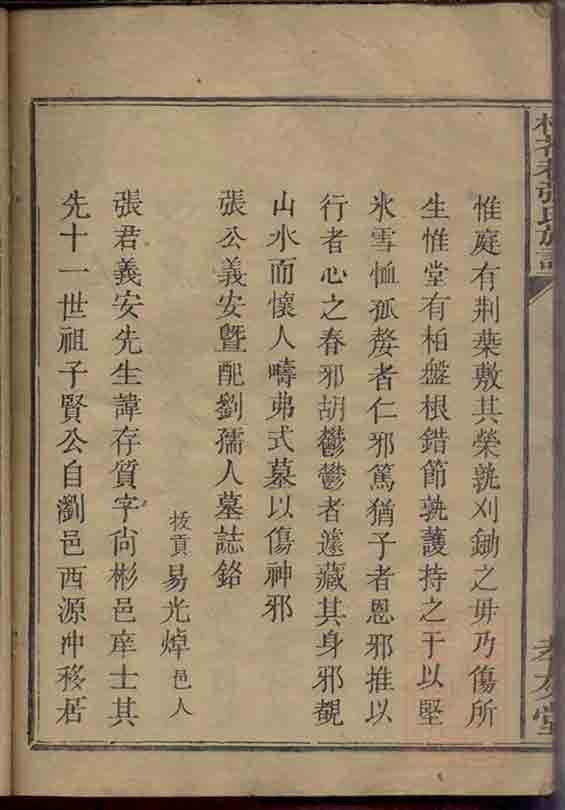 惟庭有荆葉敷其榮孰刈鋤之毋乃傷所
生惟堂有柏盤根錯節孰護持之于以堅
氷雪恤孤嫠者仁邪篤猶子者恩邪推以
行者心之春邪胡鬱鬱者遽藏其身邪覩
山水而懷人疇弗式墓以傷神邪
張公義安曁配劉孺人墓誌銘
拔貢易光焯邑人
張君義安先生諱存質字尙彬邑庠士其
先十一世祖子賢公自瀏邑西源冲移居
張氏族譜
孝友堂